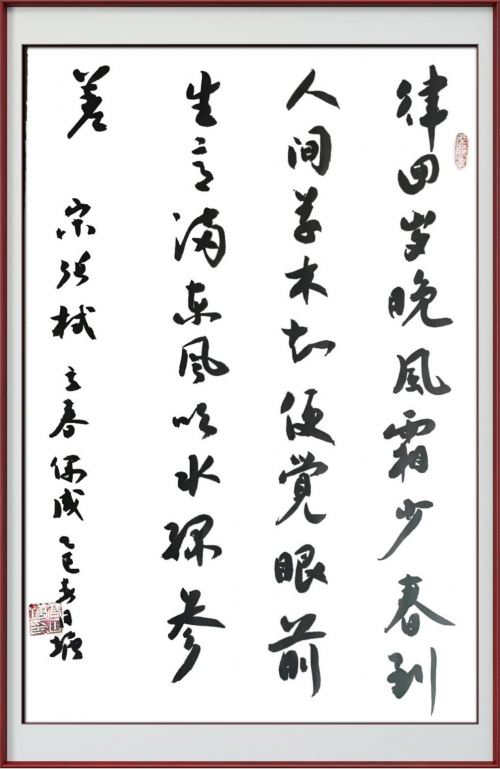 律回岁晚风霜少春到
人间草木知便觉眼前
生意满东风吹水绿参
差 宋张栻立春偶成乙巳春日